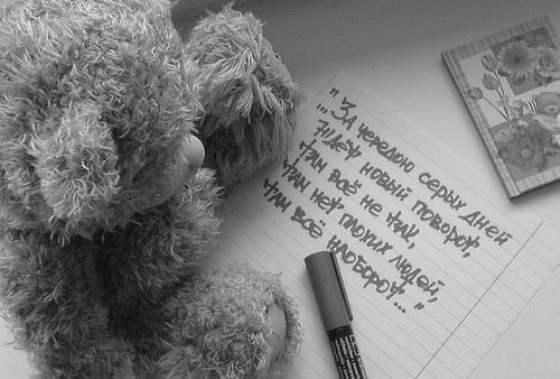 "...За чередою серых дней
Ждёт новый поворот,
Там всё не так,
Там нет плохих людей,
Там всё наоборот..."